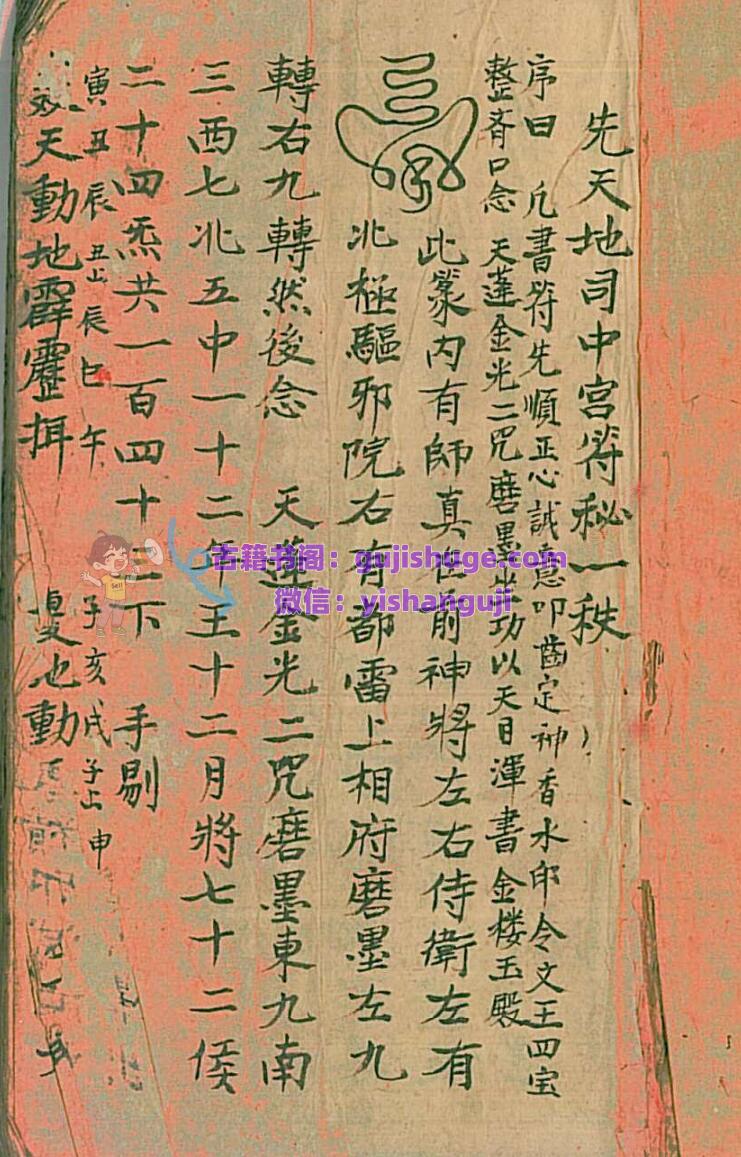 先天地司中宫符秘一秩
序曰 凡書符先順正心誠意叩齒定神香水印令文王四宝
整斉口念 天蓬金光二咒磨墨坐功以天目渾書金楼玉殿
此篆内有師真在前神將左右侍衛左有
北極驅邪院右有都雷上相府磨墨左九
轉右九轉然後念 天蓬金光二咒磨墨東九南
三西七北五中一十二年王十二月將七十二候
二十四炁共一百四十三下 手剔
寅丑辰丑上辰巳午 子亥戌子上申
天動地霹靂揖 也動
古籍书阁：gujishuge.com
微信：yishanguji
Sell